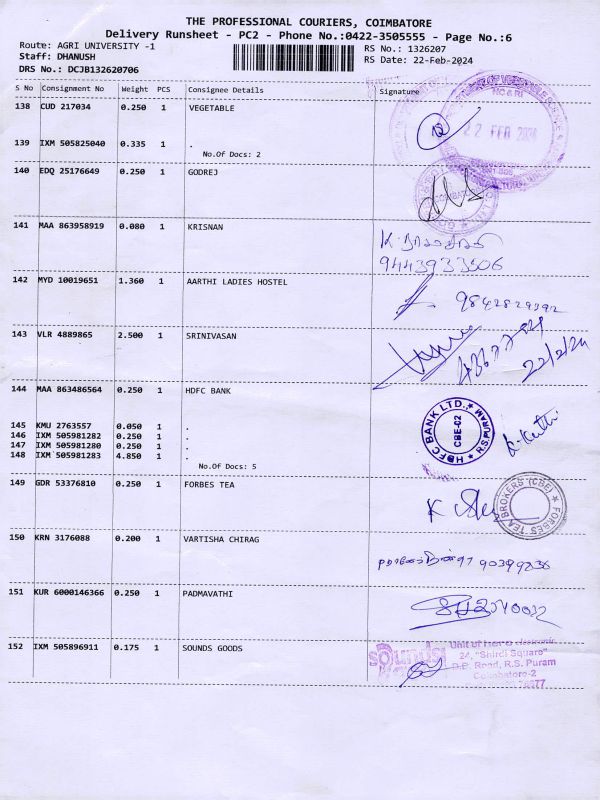 THE PROFESSIONAL COURIERS, COIMBATORE
Delivery Runsheet - PC2 - Phone No.:0422-3505555 - Page No.:6
Route: AGRI UNIVERSITY -1
RS No.: 1326207
Staff: DHANUSH
RS Date: 22-Feb-2024
DRS No.: DCJB132620706
S No Consignment No Weight PCS Consignee Details Signature
138 CUD 217034 0.250 1 VEGETABLE
HC & RI
22 FEB 2024
139 IXM 505825040 0.335 1 .
No.Of Docs: 2
140 EDQ 25176649 0.250 1 GODREJ
141 MAA 863958919 0.080 1 KRISNAN
9443933506
142 MYD 10019651 1.360 1 AARTHI LADIES HOSTEL
9842829392
143 VLR 4889865 2.500 1 SRINIVASAN
22/2/24
144 MAA 863486564 0.250 1 HDFC BANK
HDFC BANK LTD., ★ R.S.PURAM ★
CBE-02
145 KMU 2763557 0.050 1 .
146 IXM 505981282 0.250 1 .
147 IXM 505981280 0.250 1 .
148 IXM 505981283 4.850 1 .
No.Of Docs: 5
149 GDR 53376810 0.250 1 FORBES TEA
★ FORBES TEA BROKERS (CBE)
150 KRN 3176088 0.200 1 VARTISHA CHIRAG
151 KUR 6000146366 0.250 1 PADMAVATHI
152 IXM 505896911 0.175 1 SOUNDS GOODS
Sounds
24, "Shirdi Square"
D.B. Road, R.S. Puram
Coimbatore-2